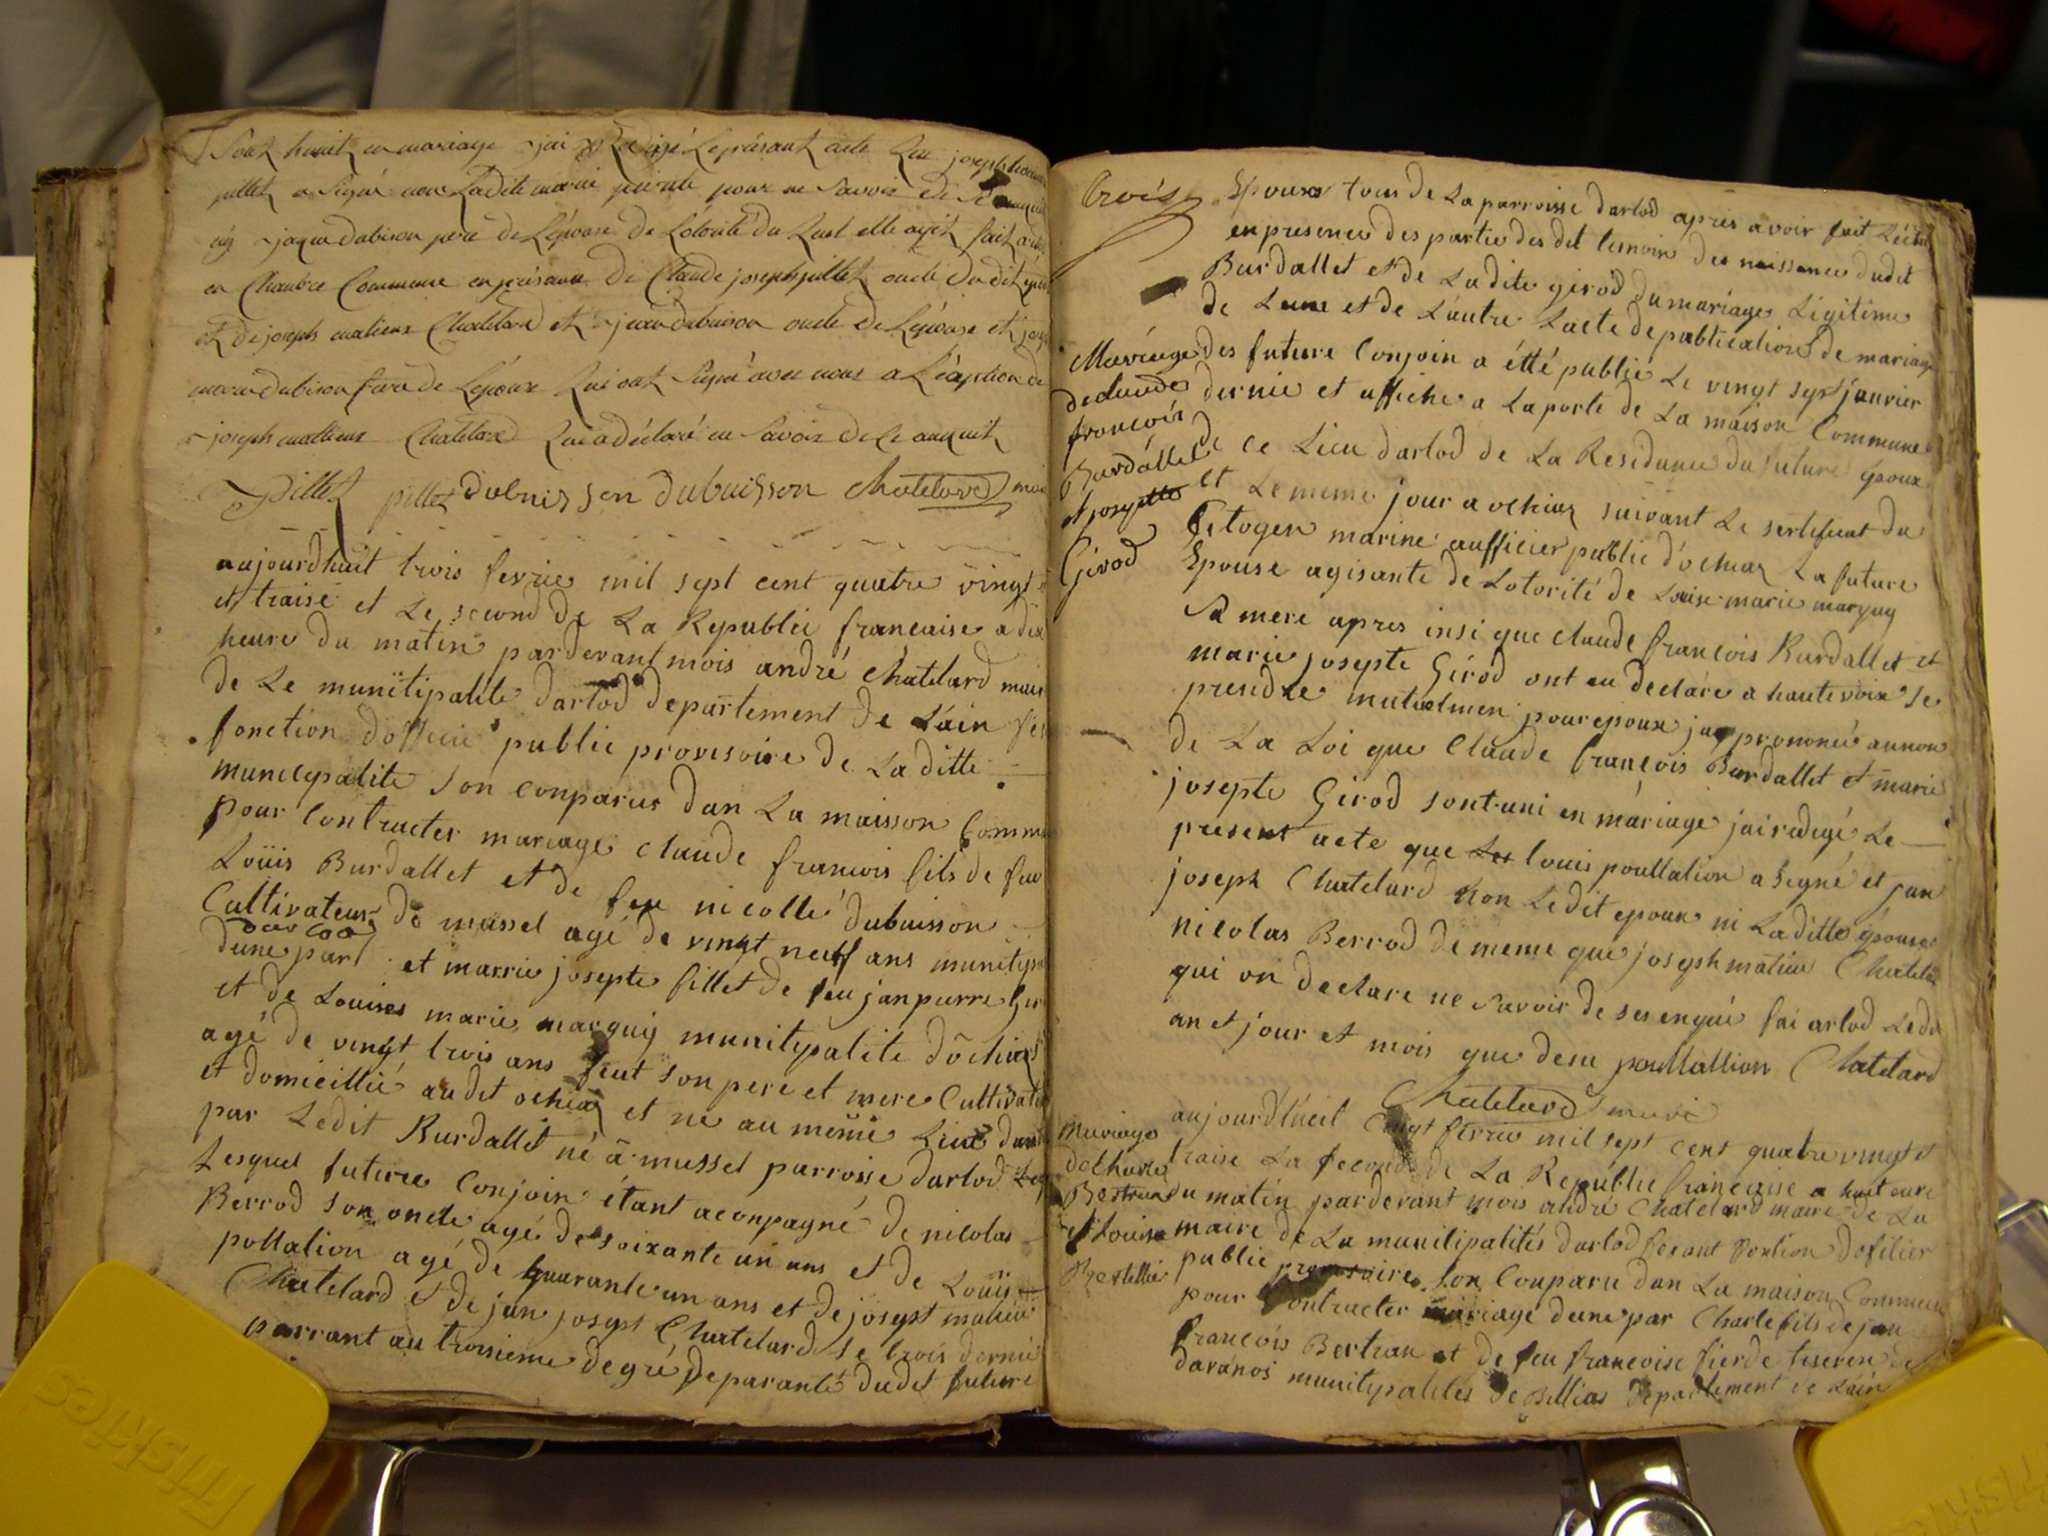 Sont hunit en mariage jai Redigé Leprésant acte Leu joseph
pillet a Signé non Ladite marie pour ne Savoir de
jaque dubison pere de Lépouse de Lotorité du Luel elle agit fait
en Chambre Commune enprésance De Claude joseph pillet oncle dudit
et de joseph matieux Chatelard et jean dubuison oncle de Lépouse et
dubison frere de Lépoux Lui ont Signé avec nous a Léxeption de
joseph mattieux Chatelard Lui a déclaré ne Savoir de Ce anquit
pillet pillet dubuisson dubuisson Chatelard maire
aujourdhuit trois fevrie mil sept cent quatre vingt
et traise et Le second de La Republice francaise a dix
heure du matin pardevant mois andré chatelard maire
de Le munitipalite darlod departement de Lain
fonction dofficie public provisoire de Laditte
municipalite son conparus dan La maisson Commu
pour Contracter mariage claude francois fils de feu
Loüis Burdallet et de feu nicolle dubuisson
Cultivateur de mussel agé de vingt neuf ans munitipa
darlod
dune part et marrie josepte fillet de feu janpierre Gir
et de Louises marie marquiy munitipalite dochiaz
agé de vingt trois ans feut son pere et mere Cultivat
et domicillié audit ochiaz et né au même Lieu
par Ledit Burdallet né a mussel parroisse darlod
Lesquel futeree Conjoin étant aconpagné de nicolas
Berrod son oncle agé de soixante un ans et de Loüis
pollation agé de quarante un ans et de joseph matieu
Chatelard et de jan joseps Chatelard le trois dernie
parrant au troisieme degré de paranté dudit future
trois Epoux tous de La parroisse darlod apres avoir fait Léctu
enpresence des partie des dit temoin des naissence dudit
Burdallet et de Ladite girod du mariage Ligitime
de Lune et de Lautre Lacte de publication de mariage
Mariage des future Conjoin a étté publié Le vingt sept janvier
declaude dernie et affiche a Laporte de La maison Commune
francois
Burdallet de ce Lieu darlod de La Residance du future Epoux
et josepte et Le meme jour a ochiaz suivant Le sertificat du
Girod Citogen marine aufficier public dochiaz La future
Epouse agisante de Lotorité de Louise marie marquy
Sa mere apres insi que claude francois Burdallet et
marie josepte Girod ont eu declare a haute voix se
prendre mutuelmen pour epoux jay prononcé aunon
de La Loi que Claude francois Burdallet et marie
josepte Girod sont uni en mariage jairedigé Le
present acte que Les louis poullation a Segné et jan
joseph Chatelard non Ledit epoux ni Laditte épouse
nicolas Berrod de meme que joseph matieu Chatela
qui on declare ne savoir de ses enquié fai arlod Ledi
an et jour et mois que desu poullallion Chatelard
Chatelard maire
aujourdhueil vingt fevrie mil sept cent quatre vingt et
Mariage
decharle traise La seconde de La Republice francaise a huit eure
Bertran du matin pardevant mois andré Chatelard maire de La
et Louise maire de La munitipalités darlod fesant fontion dofilier
Bertellier public provisoire son Conparu dan La maison Commune
pour Contracter mariage deune par Charle fils de jan
francois Bertran et de feu francoise fierde teseren de
daranos munitypalites de Billias departement de Lain